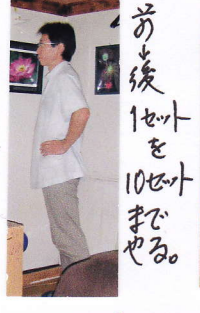 前→後
1セット
を
10セット
まで
やる。